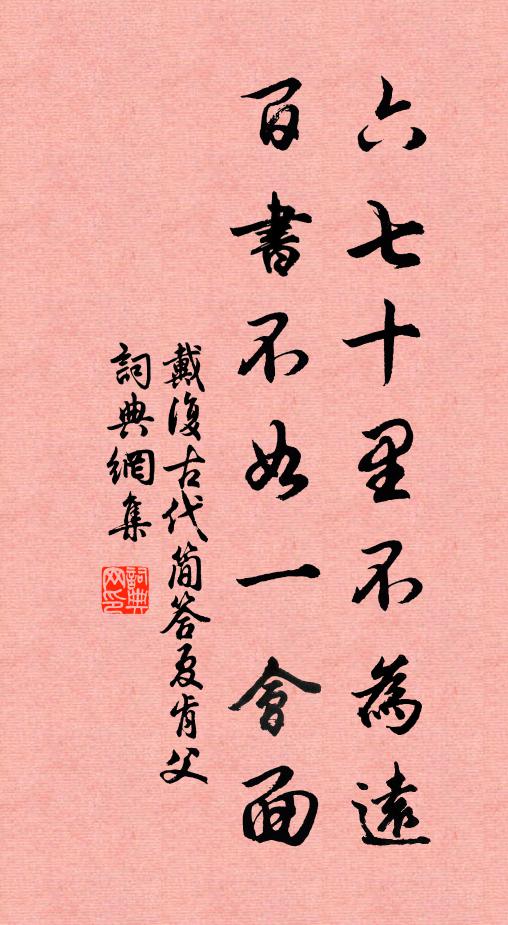 六七十里不為遠
百書不如一會面
戴復古代簡答夏肯父
詞典網集
詞典网印